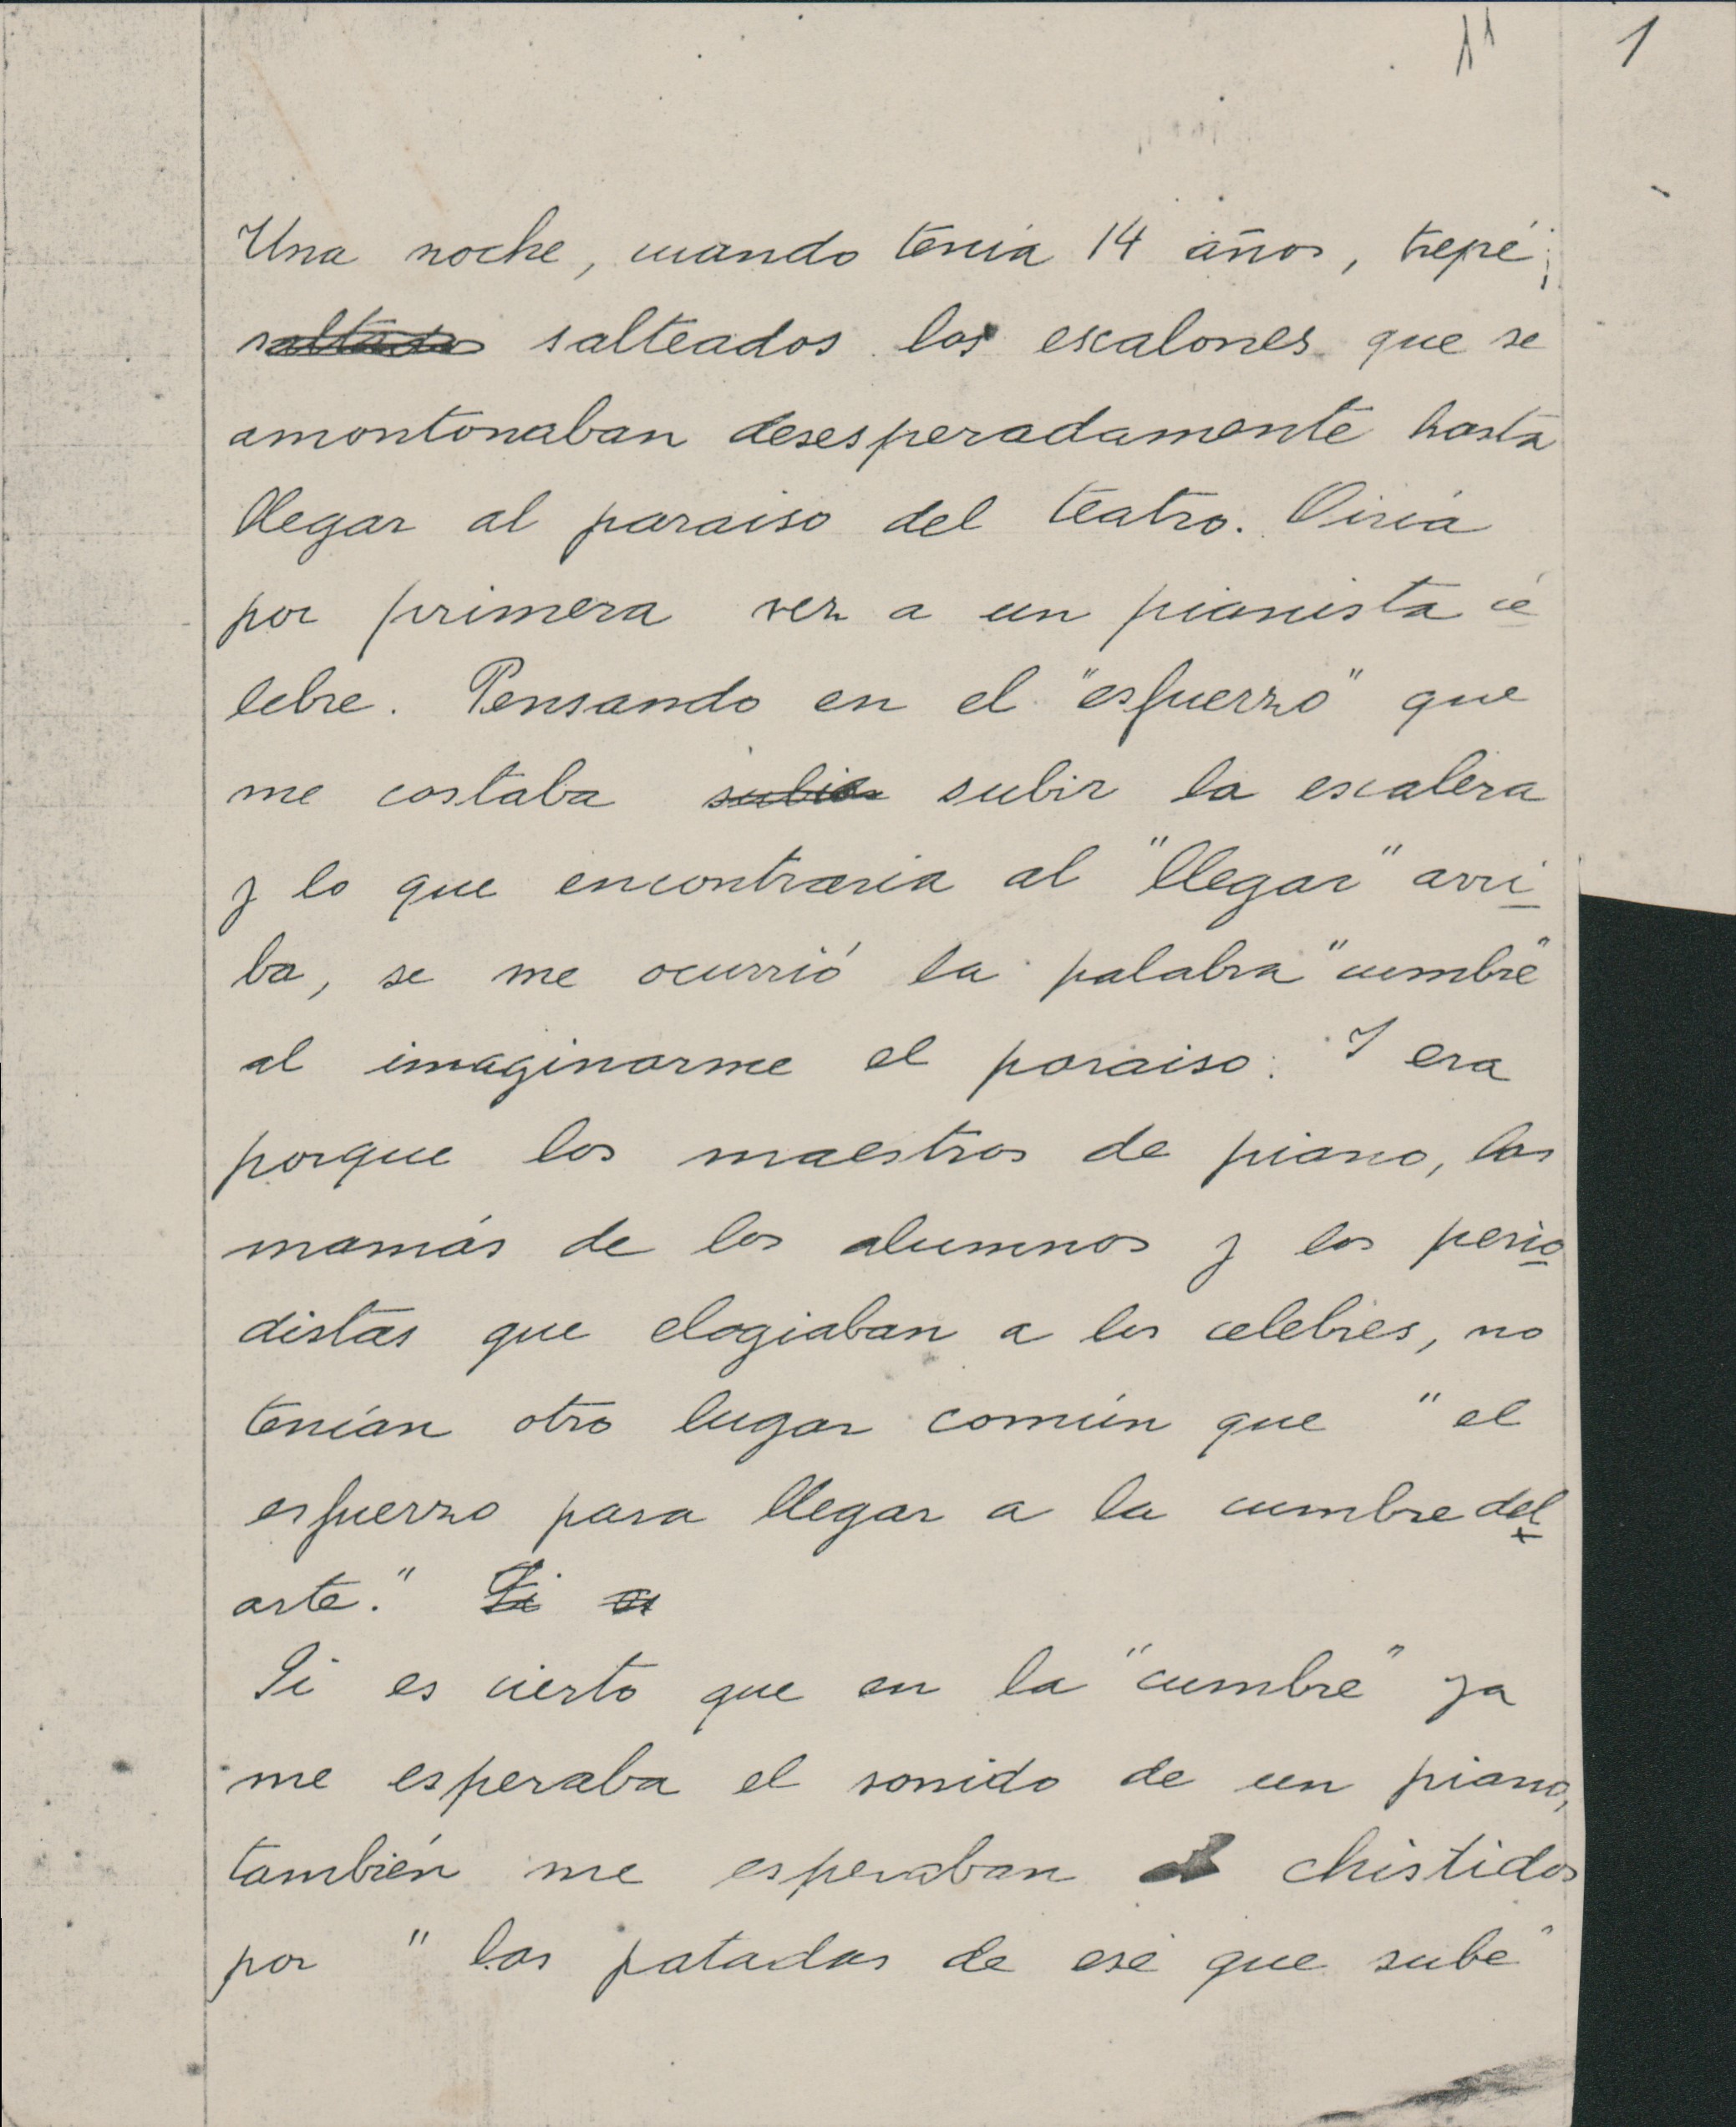 11 1
Una noche, cuando tenía 14 años, trepé;
saltado salteados los escalones que se
amontonaban desesperadamente hasta
llegar al paraiso del teatro. Oiría
por primera vez a un pianista cé
lebre. Pensando en el "esfuerzo" que
me costaba subir la escalera
y lo que encontraría al "llegar" arri
ba, se me ocurrió la palabra "cumbre"
al imaginarme el paraiso. Y era
porque los maestros de piano, las
mamás de los alumnos y los perio
distas que elogiaban a los celebres, no
tenían otro lugar común que "el
esfuerzo para llegar a la cumbre del
arte." Si
Si es cierto que en la "cumbre" ya
me esperaba el sonido de un piano,
también me esperaban chistidos
por "las patadas de ese que sube"